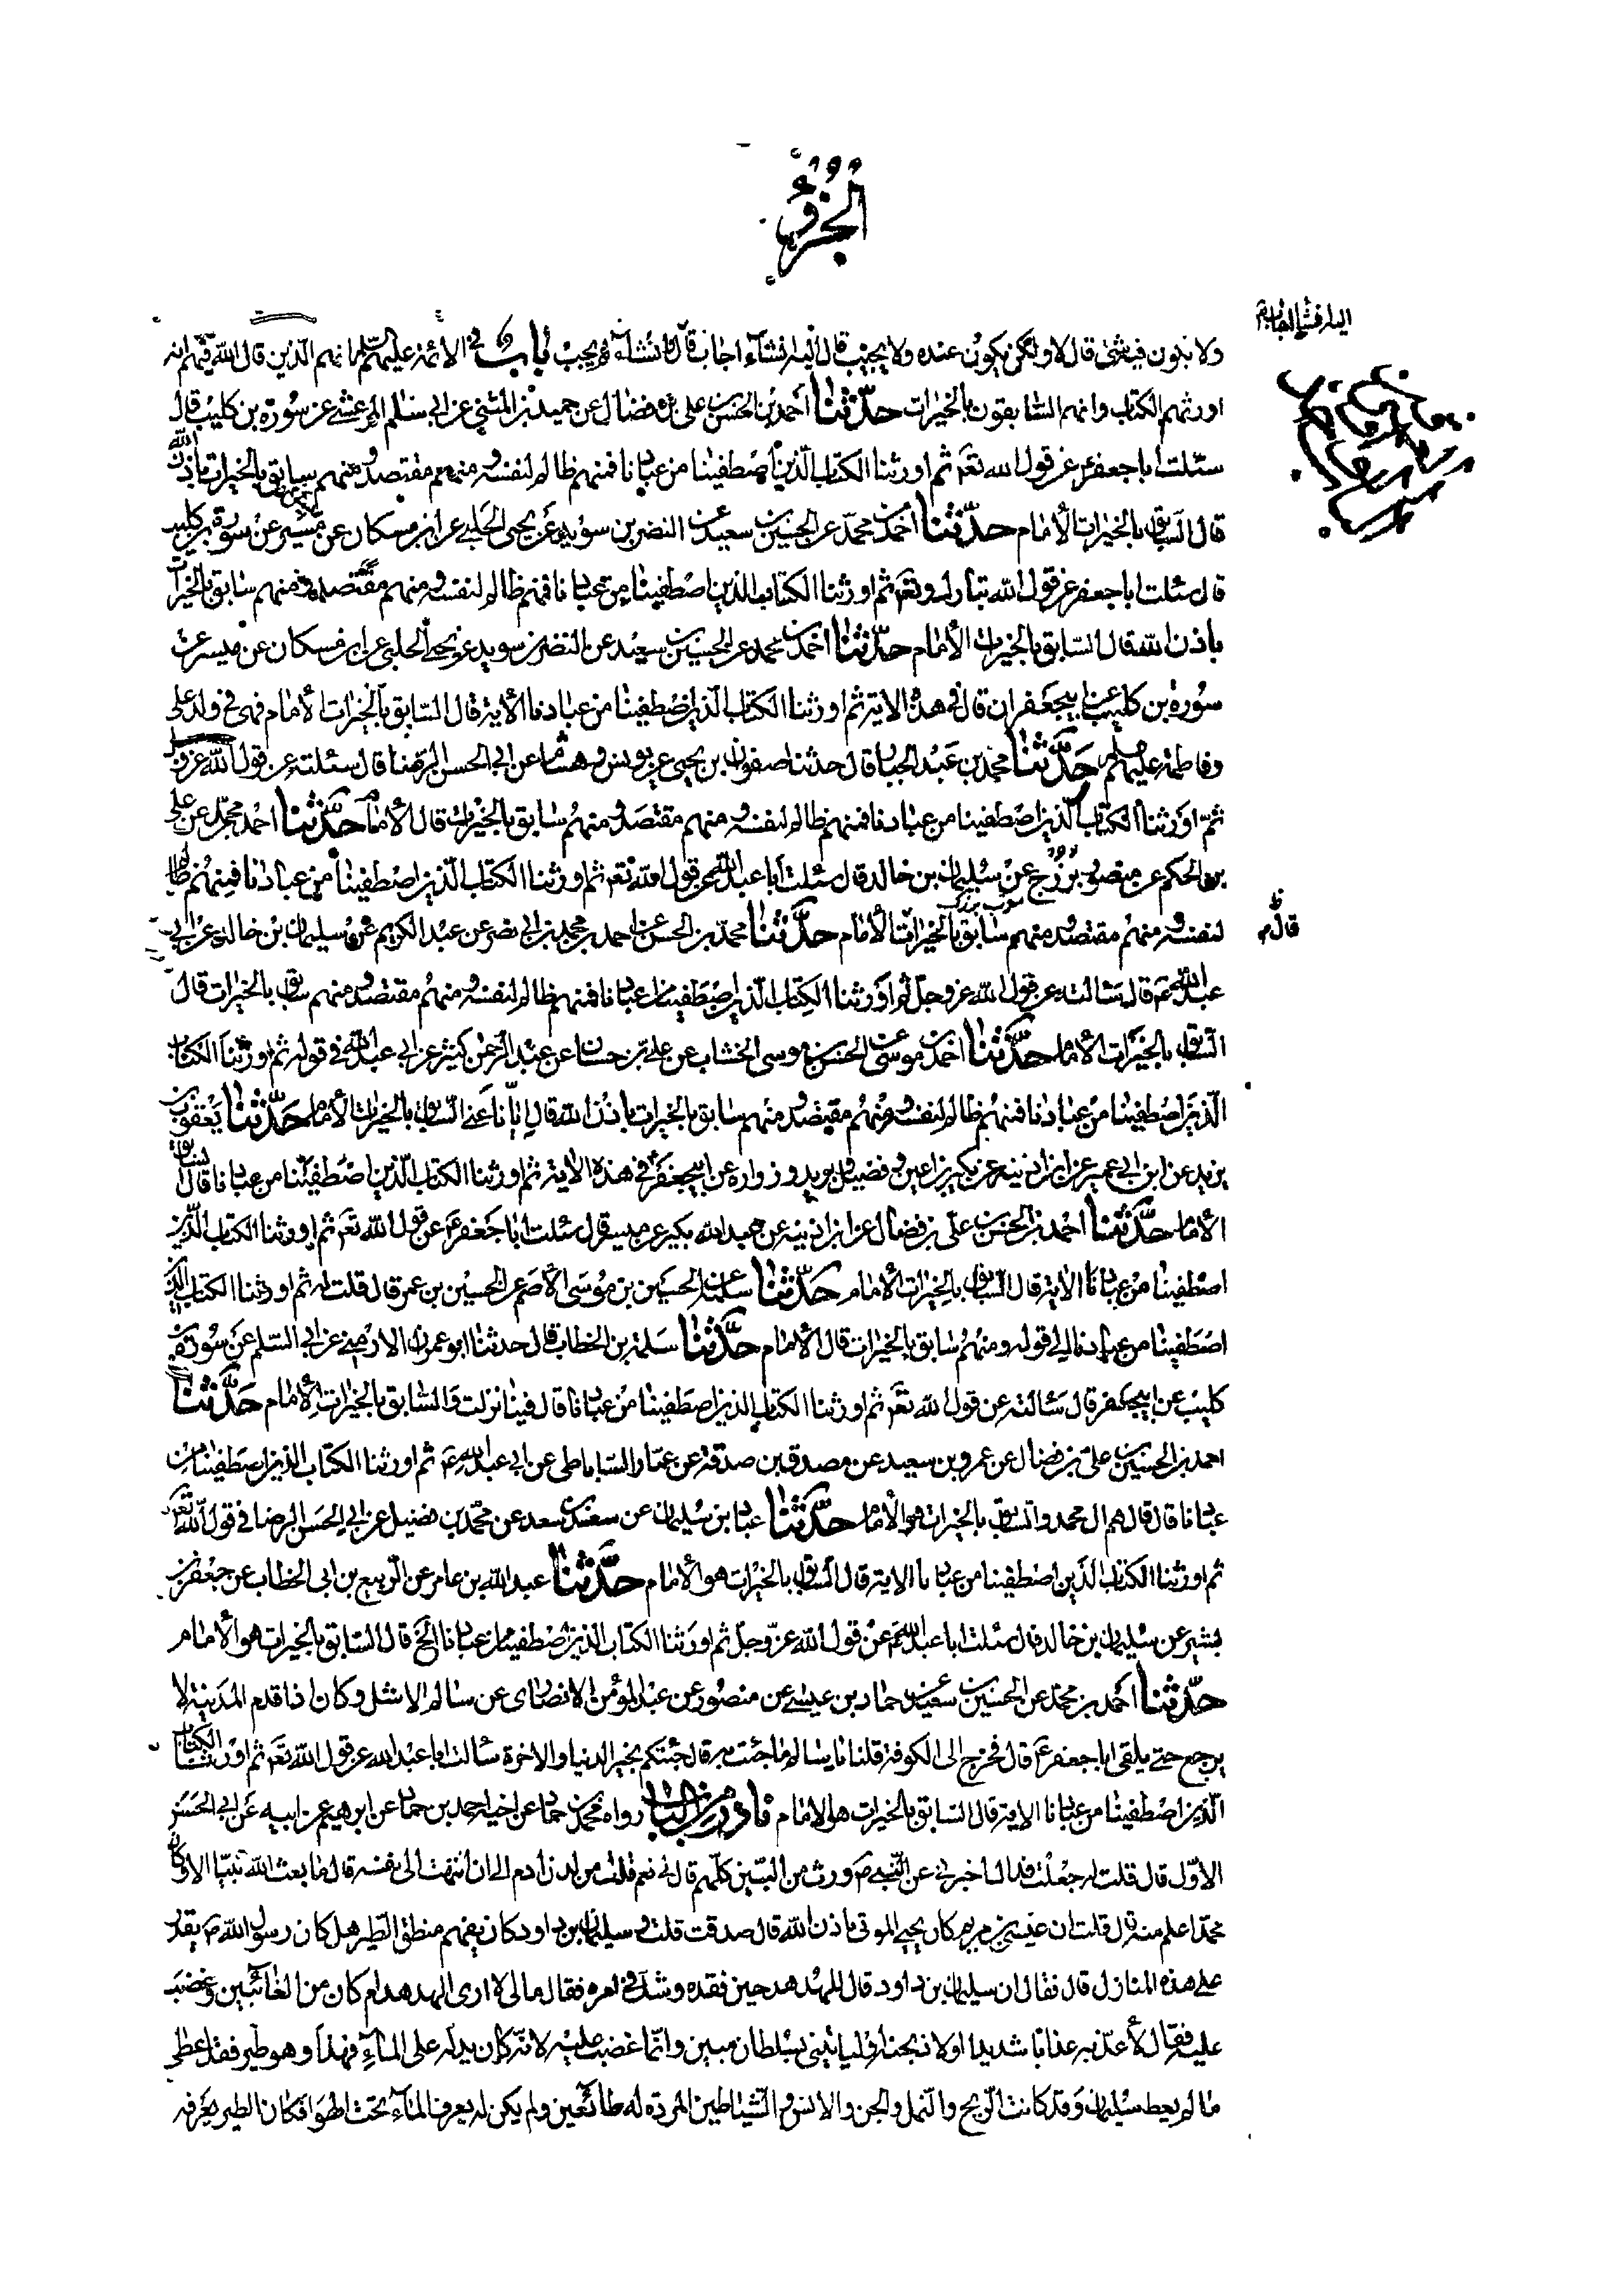 الجزؤ
ولا يكون فيه شئ قال لا ولكن يكون عنده ولا يجيب قال اليه ان شاء اجاب قال ان شاء لم يجب باب في الائمة عليهم السلم انهم الذين قال الله فيهم انه
اورثهم الكتاب وانهم السابقون بالخيرات حدثنا احمد بن الحسن بن علي بن فضال عن حميد بن المثنى عن ابي سلام المرعشي عن سورة بن كليب قال
سئلت ابا جعفر ع عن قول الله تعم ثم اورثنا الكتاب الذين اصطفينا من عبادنا فمنهم ظالم لنفسه ومنهم مقتصد ومنهم سابق بالخيرات باذن الله
قال السابق بالخيرات الأمام حدثنا احمد بن محمد عن الحسين بن سعيد عن النضر بن سويد عن يحيى الحلبي عن ابن مسكان عن ميسر عن سورة بن كليب
قال سئلت ابا جعفر عن قول الله تبارك وتعم ثم اورثنا الكتاب الذين اصطفينا من عبادنا فمنهم ظالم لنفسه ومنهم مقتصد ومنهم سابق بالخيرات
باذن الله قال السابق بالخيرات الأمام حدثنا احمد بن محمد عن الحسين بن سعيد عن النضر بن سويد عن يحيى الحلبي عن ابن مسكان عن ميسر عن
سورة بن كليب عن ابيجعفر ان قال في هذه الاية ثم اورثنا الكتاب الذين اصطفينا من عبادنا الأية قال السابق بالخيرات الأمام فهي في ولد علي
وفاطمة عليهم السلم حدثنا محمد بن عبد الجبار قال حدثنا صفوان بن يحيى عن يونس وهشام عن ابي الحسن الرضا قال سئلته عن قول الله عز وجل
ثم اورثنا الكتاب الذين اصطفينا من عبادنا فمنهم ظالم لنفسه ومنهم مقتصد ومنهم سابق بالخيرات قال الأمام حدثنا احمد بن محمد عن علي
بن الحكم عن منصور بزرج عن سليمان بن خالد قال سئلت ابا عبد الله عن قول الله تعم ثم اورثنا الكتاب الذين اصطفينا من عبادنا فمنهم ظالم
لنفسه ومنهم مقتصد ومنهم سابق بالخيرات الأمام حدثنا محمد بن الحسن عن احمد بن محمد بن ابي نصر عن عبد الكريم عن سليمان بن خالد عن ابي
عبد الله ع قال سالته عن قول الله عز وجل ثم اورثنا الكتاب الذين اصطفينا من عبادنا فمنهم ظالم لنفسه ومنهم مقتصد ومنهم سابق بالخيرات قال
السابق بالخيرات الأمام حدثنا احمد بن موسى عن الحسن بن موسى الخشاب عن علي بن حسان عن عبد الرحمن كثير عن ابي عبد الله في قوله ثم اورثنا الكتاب
الذين اصطفينا من عبادنا فمنهم ظالم لنفسه ومنهم مقتصد ومنهم سابق بالخيرات باذن الله قال ايانا عنى السابق بالخيرات الأمام حدثنا يعقوب بن
يزيد عن ابن ابي عمير عن ابن اذينه عن بكير بن اعين وفضيل وبريد وزراره عن ابيجعفر في هذه الاية ثم اورثنا الكتاب الذين اصطفينا من عبادنا قال السابق
الأمام حدثنا احمد بن الحسن بن علي بن فضال عن ابن اذينه عن عبد الله بكير عن ميسر قال سئلت ابا جعفر ع عن قول الله تعم ثم اورثنا الكتاب الذين
اصطفينا من عبادنا الاية قال السابق بالخيرات الأمام حدثنا سلمة عن الحسين بن موسى الأصم عن الحسين بن عمر قال قلت له ثم اورثنا الكتاب الذين
اصطفينا من عبادنا الى قوله ومنهم سابق بالخيرات قال الأمام حدثنا سلمة بن الخطاب قال حدثنا ابو عمران الارمني عن ابي السلم عن سورة بن
كليب عن ابيجعفر قال سالته عن قول الله تعم ثم اورثنا الكتاب الذين اصطفينا من عبادنا قال فينا نزلت والسابق بالخيرات الأمام حدثنا
احمد بن الحسن بن علي بن فضال عن عمرو بن سعيد عن مصدق بن صدقة عن عمار الساباطي عن ابي عبد الله ع ثم اورثنا الكتاب الذين اصطفينا من
عبادنا قال قال هم ال محمد والسابق بالخيرات هو الأمام حدثنا عباد بن سليمان عن سعد بن سعد عن محمد بن فضيل عن ابي الحسن الرضا في قول الله تعم
ثم اورثنا الكتاب الذين اصطفينا من عبادنا الاية قال السابق بالخيرات هو الأمام حدثنا عبد الله بن عامر عن الربيع بن ابى الخطاب عن جعفر بن
بشير عن سليمان بن خالد قال سئلت ابا عبد الله ع عن قول الله عز وجل ثم اورثنا الكتاب الذين اصطفينا من عبادنا الخ قال السابق بالخيرات هو الأمام
حدثنا احمد بن محمد عن الحسين بن سعيد عن حماد بن عيسى عن منصور عن عبد المؤمن الانصارى عن سالم الاشل وكان اذا قدم المدينة لا
يرجع حتى يلقى ابا جعفر ع قال فخرج الى الكوفة قلنا يا سالم ما جئت به قال جئتكم بخير الدنيا والاخرة سالت ابا عبد الله عن قول الله تعم ثم اورثنا الكتاب
الذين اصطفينا من عبادنا الاية قال السابق بالخيرات هو الامام نادر من الباب رواه محمد بن حماد عن اخيه احمد بن حماد عن ابرهيم عن ابيه عن ابي الحسن
الاول قال قلت له جعلت فداك اخبرني عن النبي ص ورث من النبيين كلهم قال لي نعم قلت من لدن ادم الى ان انتهت الى نفسه قال ما بعث الله نبيا الا وكان
محمد اعلم منه قال قلت ان عيسى بن مريم كان يحيي الموتى باذن الله قال صدقت قلت وسليمان بن داود كان يفهم منطق الطير هل كان رسول الله ص يقدر
على هذه المنازل قال فقال ان سليمان بن داود قال للهدهد حين فقده وشك في امره فقال مالى لا ارى الهدهد ام كان من الغائبين وغضب
عليه فقال لأعذبنه عذابا شديدا او لاذبحنه او لياتيني بسلطان مبين وانما غضب عليه لانه كان يدله على الماء فهذا وهو طير فقد اعطى
ما لم يعط سليمان وقد كانت الريح والنمل والجن والانس والشياطين المردة له طائعين ولم يكن له يعرف الماء تحت الهواء فكان الطير يعرفه
قال م